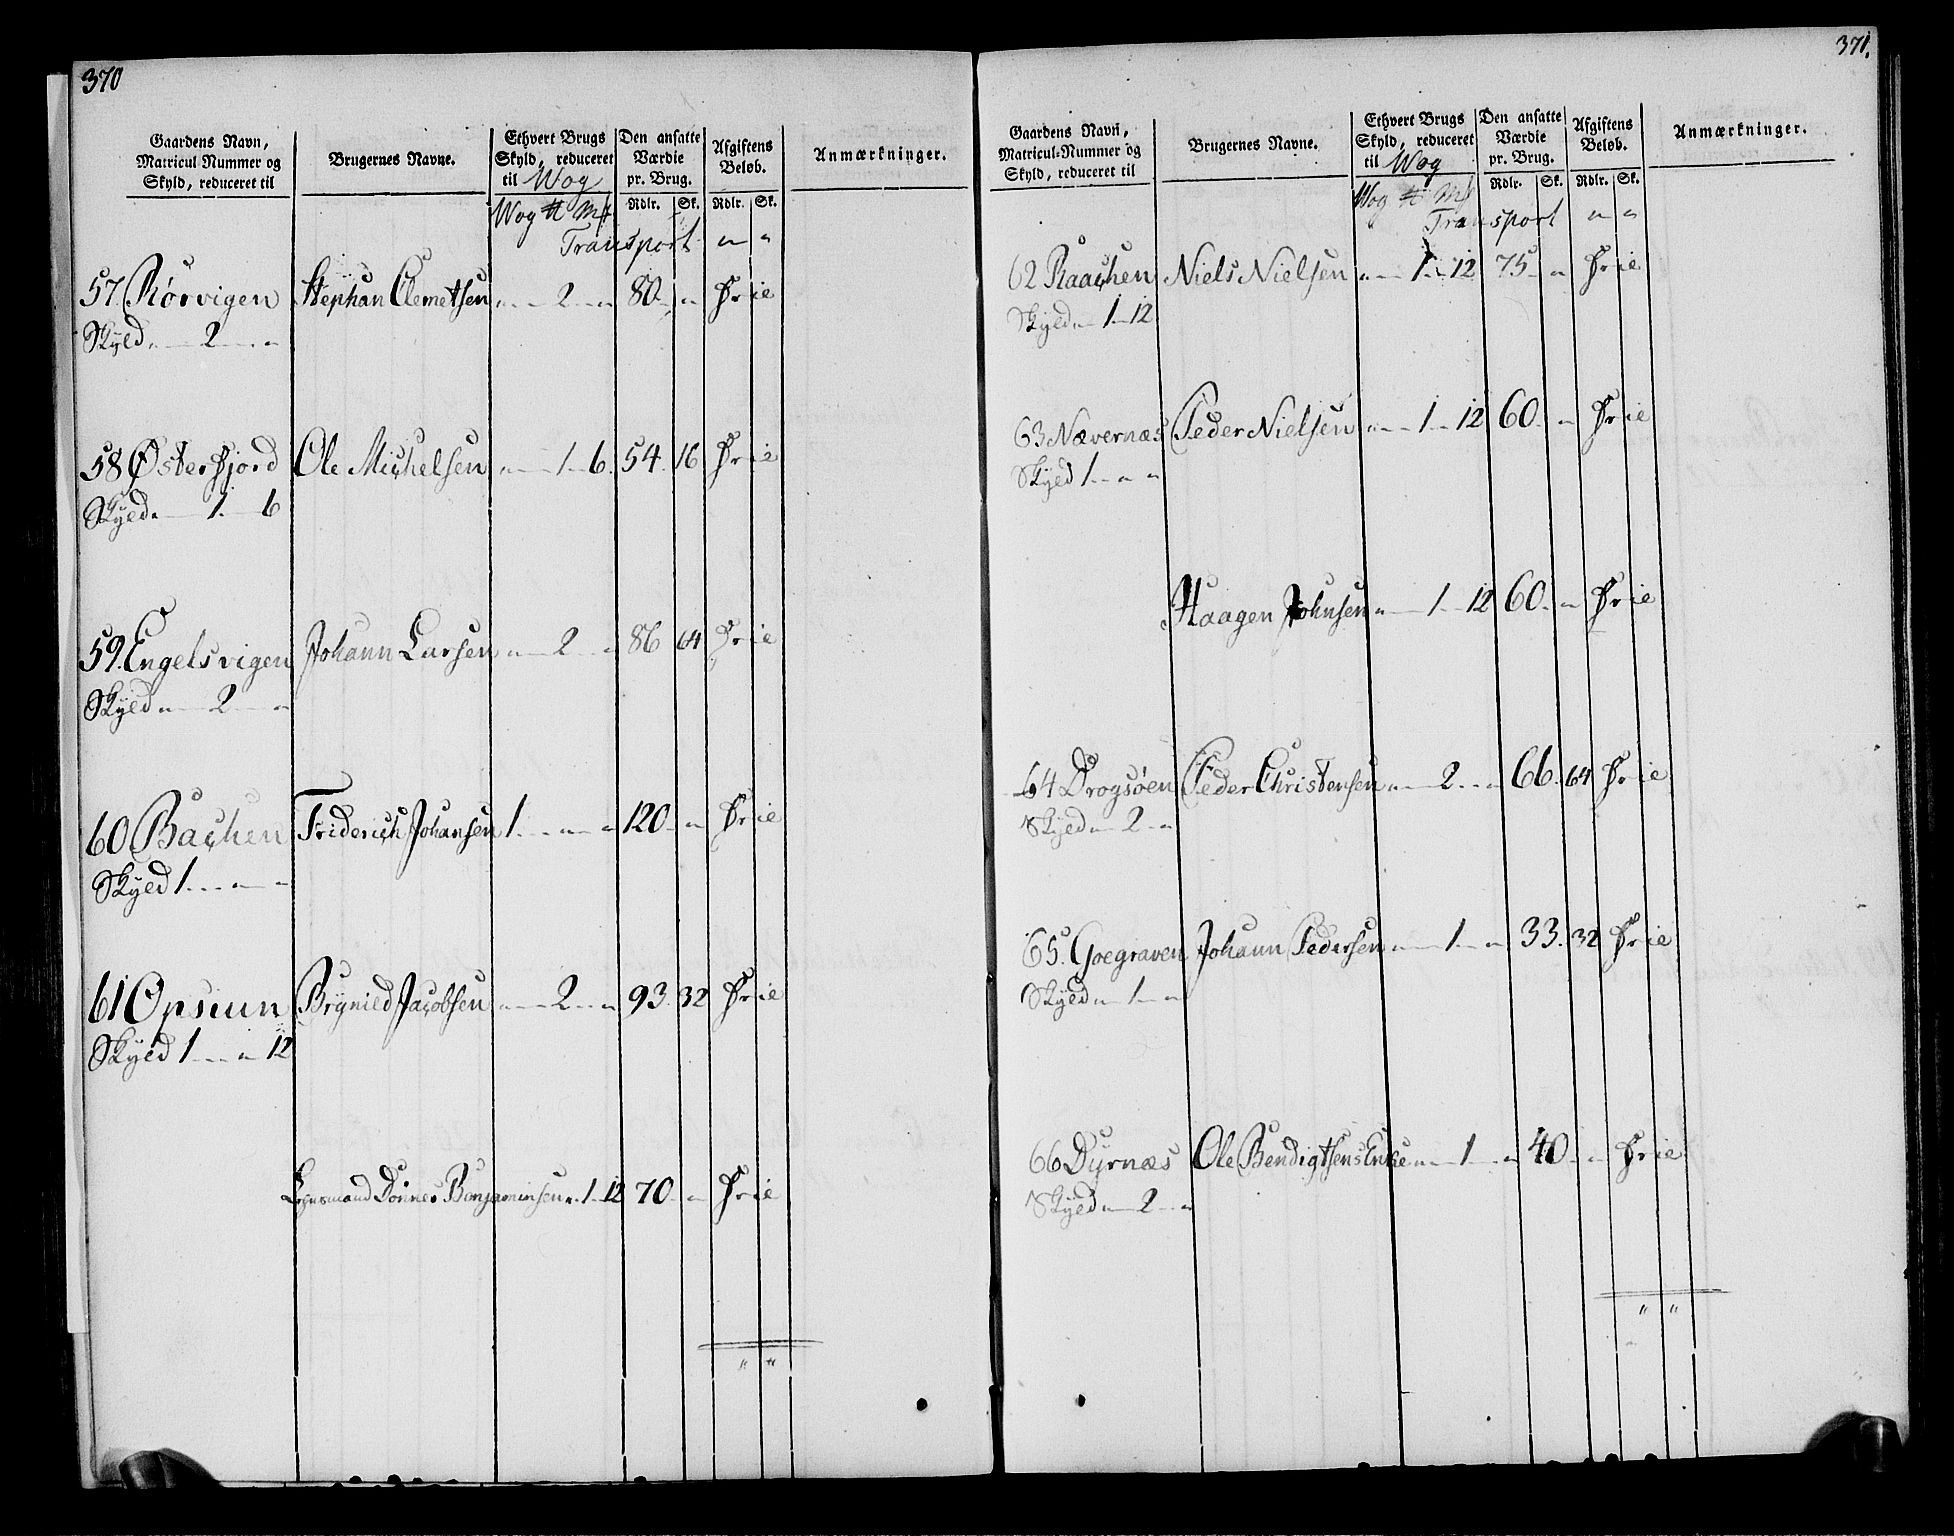 370
Gaardens Navn, Matricul Nummer og Skyld, reduceret til | Brugernes Navne. | Ethvert Brugs Skyld, reduceret til Wog | Den ansatte Værdie pr. Brug. | Afgiftens Beløb. | Anmærkninger.
Wog ℔ Mk | Rdlr. | Sk. | Rdlr. | Sk.
Transport " "
57. Rörvigen Stephan Clemetsen " 2 " 80 " Frie
Skyld " 2 "
58 Østerfjord Ole Michelsen " 1 6 54 16 Frie
Skyld " 1 6
59. Engelsvigen Johann Larsen " 2 " 86 64 Frie
Skyld " 2 "
60 Bachen Friderich Johansen 1 " " 120 " Frie
Skyld 1 " "
61 Opsiun Brynild Jacobsen " 2 " 93 32 Frie
Skyld 1 " 12
Lehnsmand Dönnes Benjaminsen " 1 12 70 " Frie
" "
371.
Gaardens Navn, Matricul-Nummer og Skyld, reduceret til | Brugernes Navne. | Ethvert Brugs Skyld, reduceret til Wog | Den ansatte Værdie pr. Brug. | Afgiftens Beløb. | Anmærkninger.
Wog ℔ Mk | Rdlr. | Sk. | Rdlr. | Sk.
Transport " "
62 Raachen Niels Nielsen " 1 12 75 " Frie
Skyld " 1 12
63 Nævernæs Peder Nielsen " 1 12 60 " Frie
Skyld 1 " "
Haagen Johnsen " 1 12 60 " Frie
64 Drogsöen Peder Christensen " 2 " 66 64 Frie
Skyld " 2 "
65. Goegraven Johann Pedersen " 1 " 33 32 Frie
Skyld " 1 "
66 Dyrnæs Ole Bendigtsens Enke " 1 " 40 " Frie
Skyld " 2 "
" "